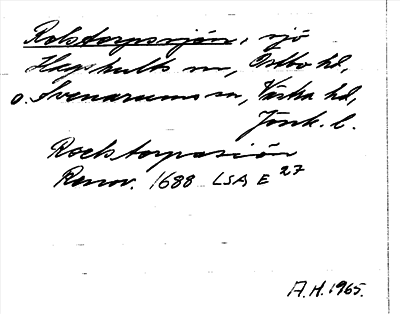 Rolstorpssjön, sjö
Hagshults sn, Östbo hd,
o. Svenarums sn, Västra hd,
Jönk. l.
Roelstorpasiön
Renov. 1688 LSA E 27
A.H. 1965.